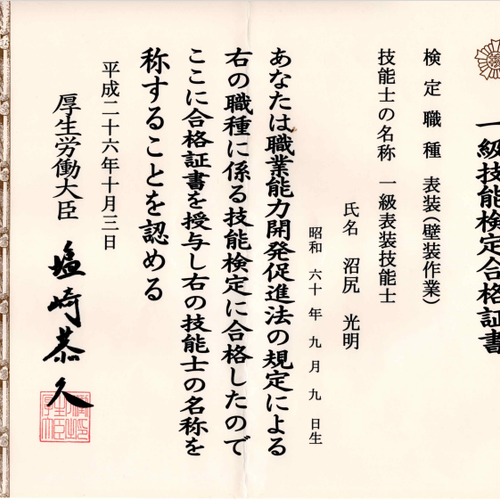 一級技能検定合格証書
検定職種 表装(壁装作業)
技能士の名称 一級表装技能士
氏名 沼尻 光明
昭和 六十年 九月 九日生
あなたは職業能力開発促進法の規定による
右の職種に係る技能検定に合格したので
ここに合格証書を授与し右の技能士の名称を
称することを認める
平成二十六年十月三日
厚生労働大臣 塩崎恭久